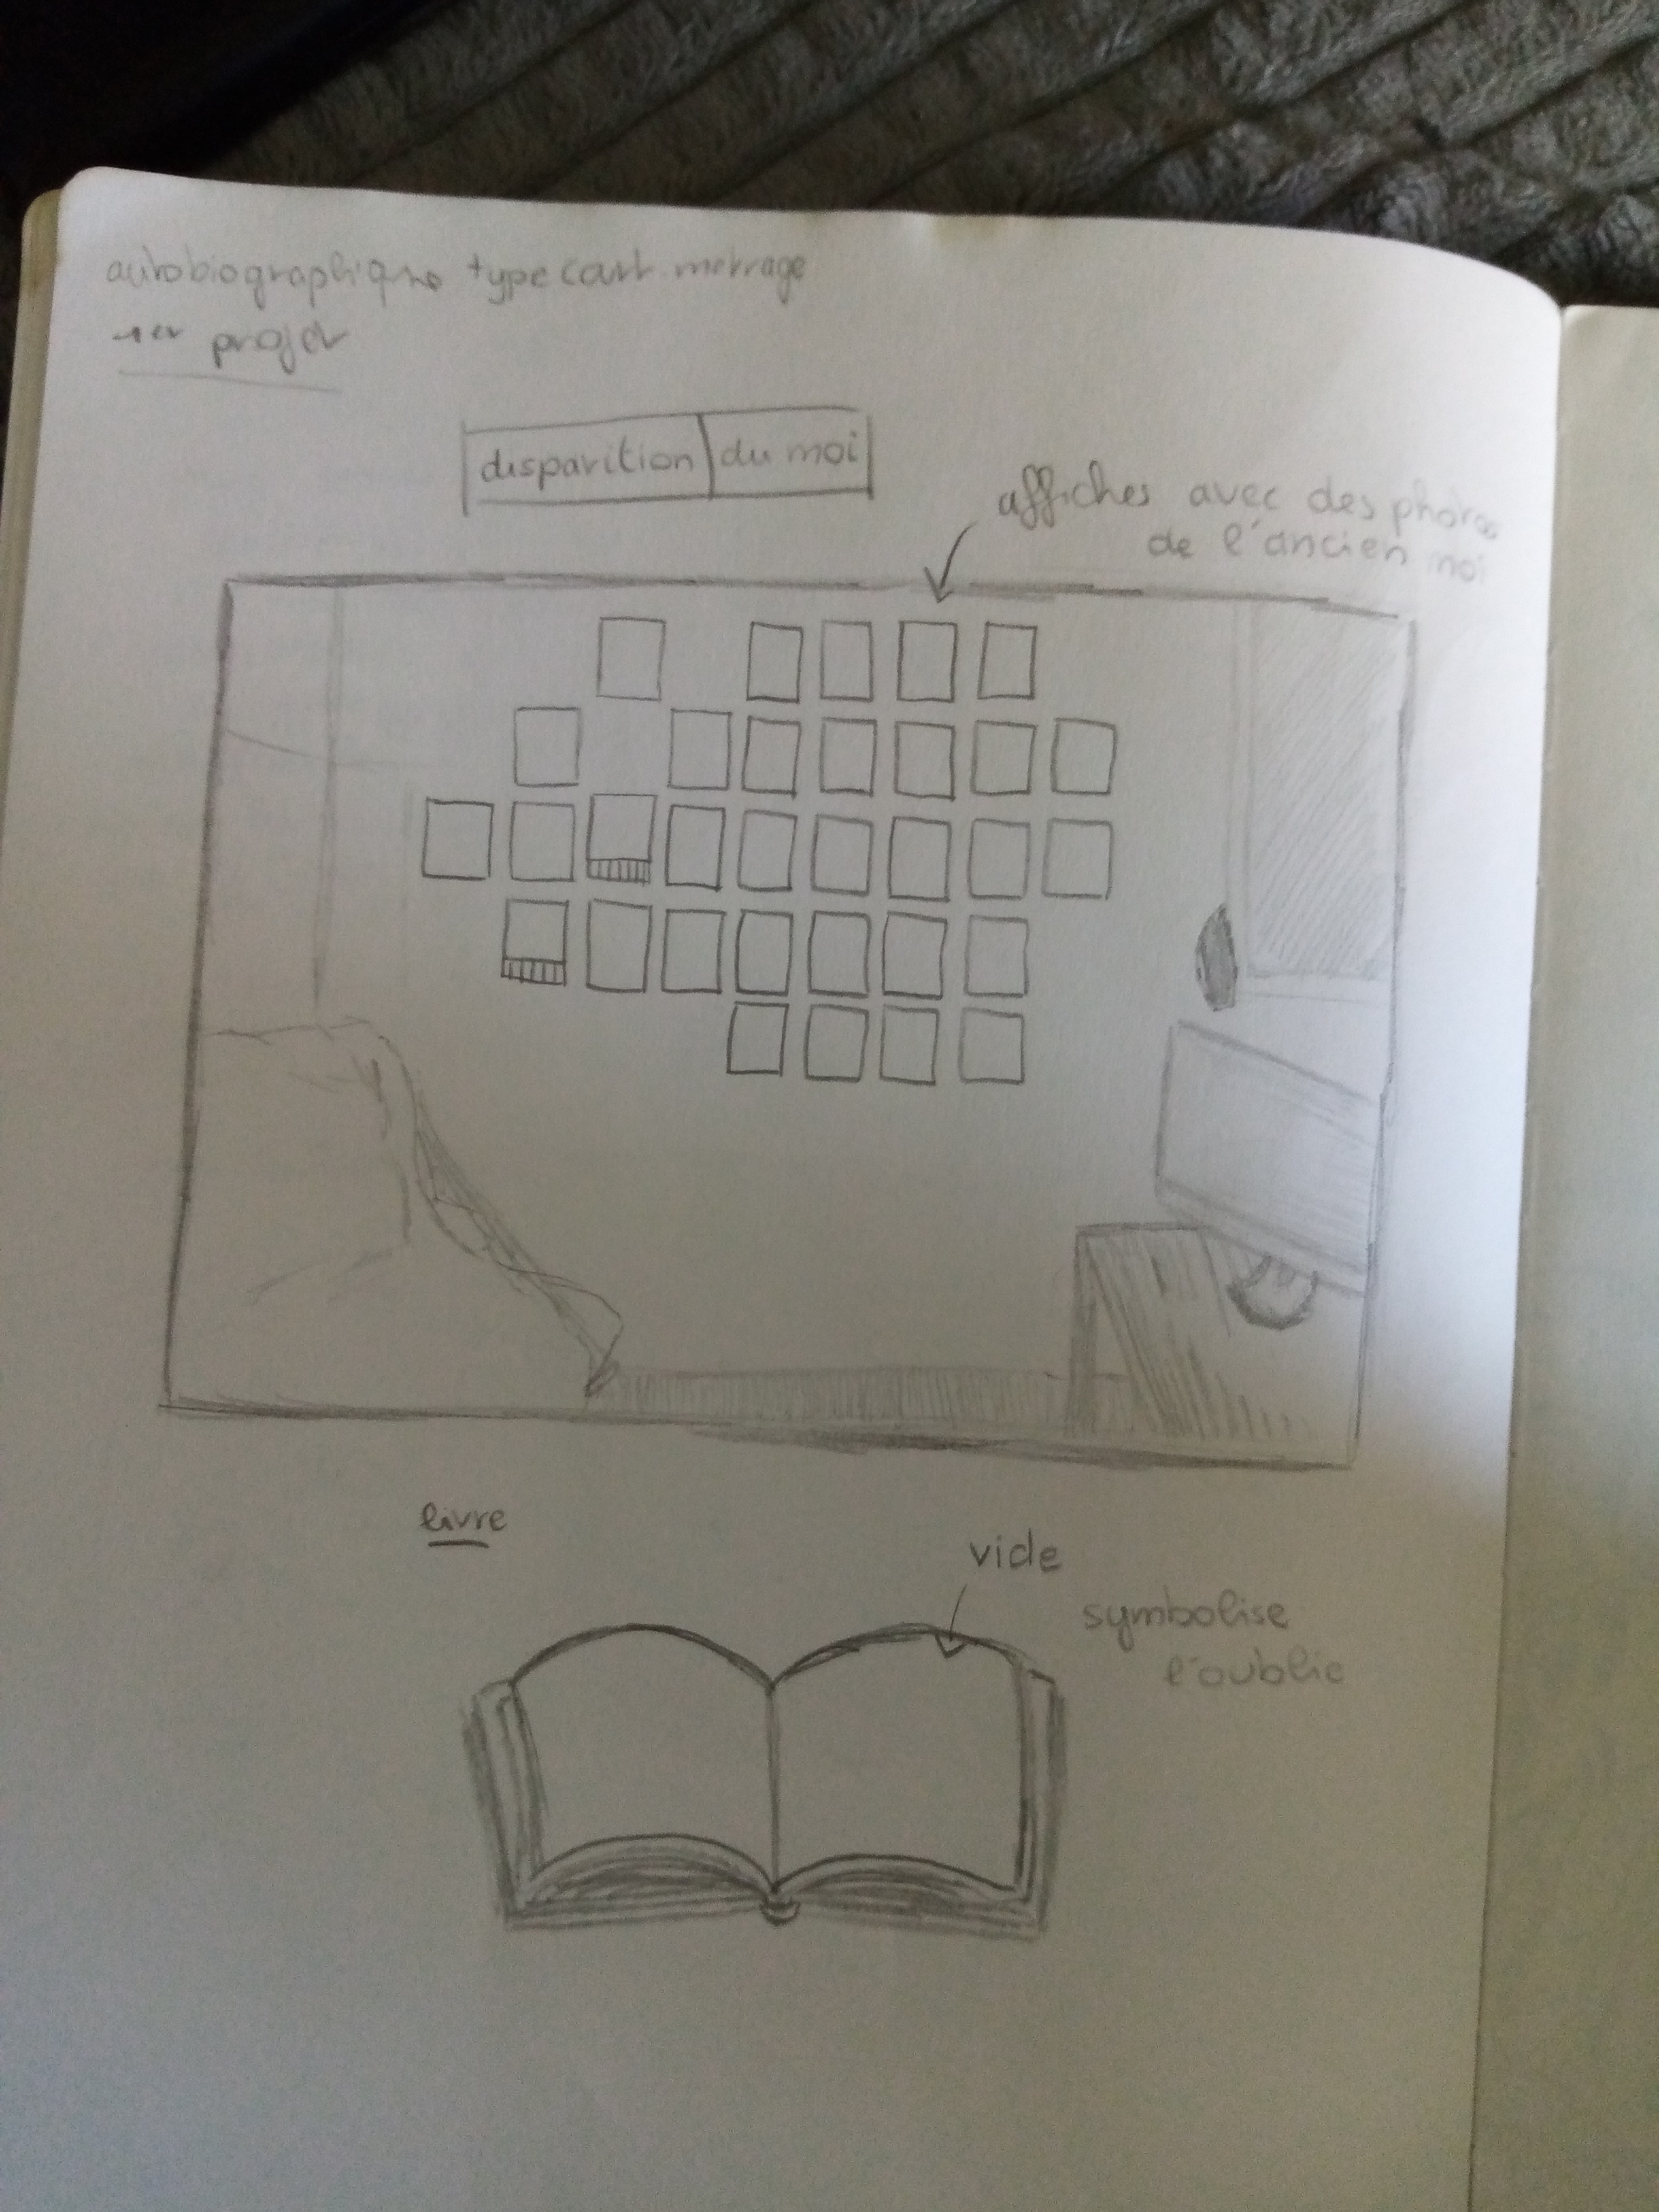 autobiographique type court metrage
1er projet
disparition du moi
affiches avec des photos
de l'ancien moi
livre
vide
symbolise
l'oublie